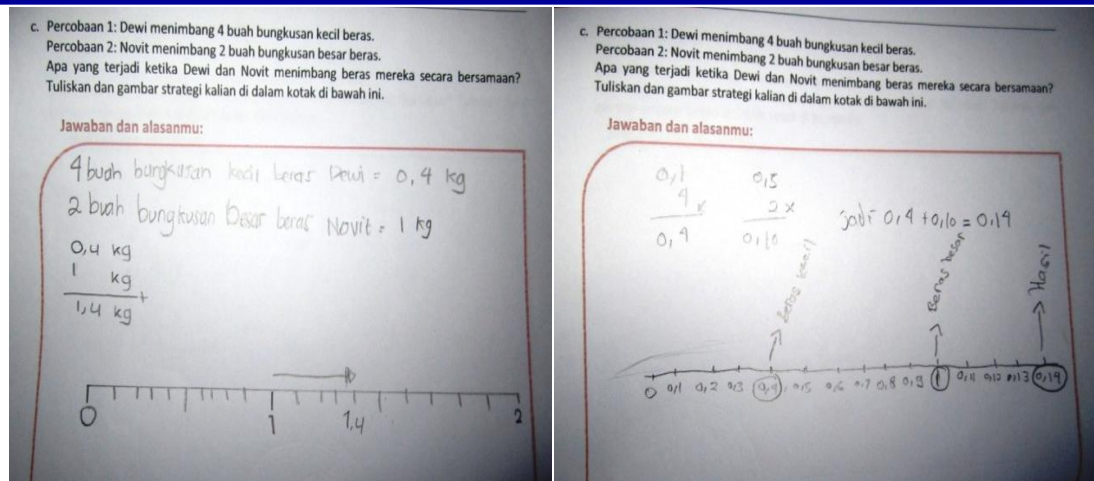 c. Percobaan 1: Dewi menimbang 4 buah bungkusan kecil beras.
Percobaan 2: Novit menimbang 2 buah bungkusan besar beras.
Apa yang terjadi ketika Dewi dan Novit menimbang beras mereka secara bersamaan?
Tuliskan dan gambar strategi kalian di dalam kotak di bawah ini.
Jawaban dan alasanmu:
4 buah bungkusan kecil beras Dewi = 0,4 kg
2 buah bungkusan Besar beras Novit = 1 kg
0,4 kg
1 kg
+
1,4 kg
0 1 1,4 2
c. Percobaan 1: Dewi menimbang 4 buah bungkusan kecil beras.
Percobaan 2: Novit menimbang 2 buah bungkusan besar beras.
Apa yang terjadi ketika Dewi dan Novit menimbang beras mereka secara bersamaan?
Tuliskan dan gambar strategi kalian di dalam kotak di bawah ini.
Jawaban dan alasanmu:
0,1 0,5
4 x 2 x
0,4 0,10 jadi 0,4 + 0,10 = 0,14
Beras kecil
Beras besar
Hasil
0 0,1 0,2 0,3 0,4 0,5 0,6 0,7 0,8 0,9 1 0,11 0,12 0,13 0,14